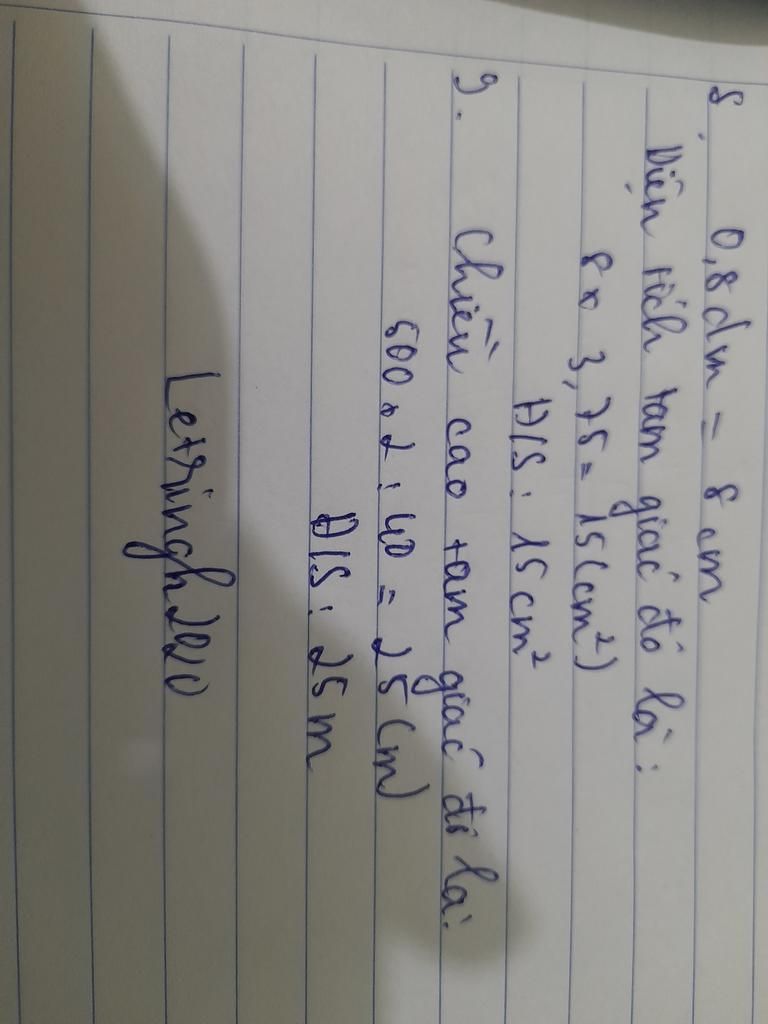 8. 0,8dm = 8cm
Diện tích tam giác đó là:
8 x 3,75 = 15(cm²)
Đ/S: 15cm²
9. Chiều cao tam giác đó là:
500 x 2 : 40 = 25(m)
Đ/S: 25m
Letringh2920